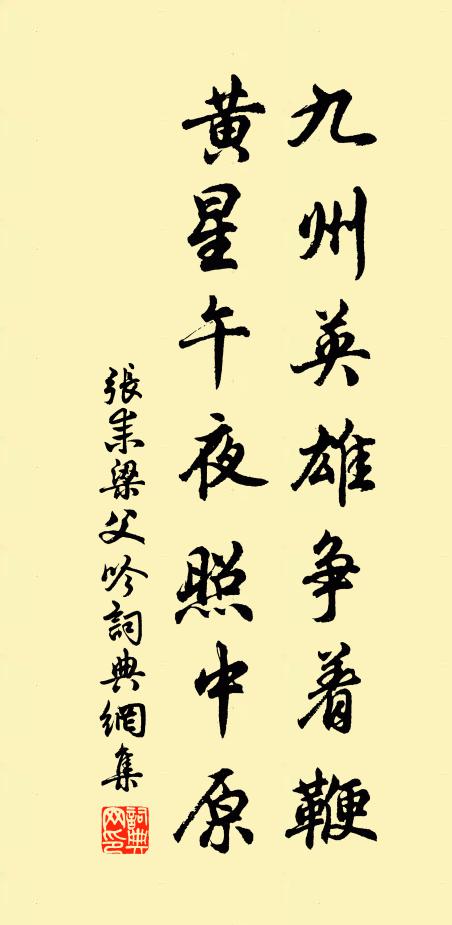 九州英雄争着鞭
黄星午夜照中原
張耒梁父吟詞典網集
詞典網印